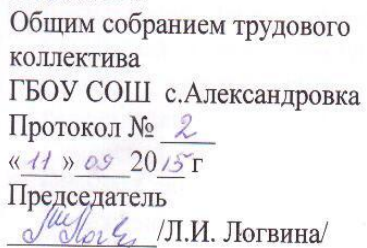 Общим собранием трудового
коллектива
ГБОУ СОШ с.Александровка
Протокол № 2
«11» 09 2015 г
Председатель
/Л.И. Логвина/